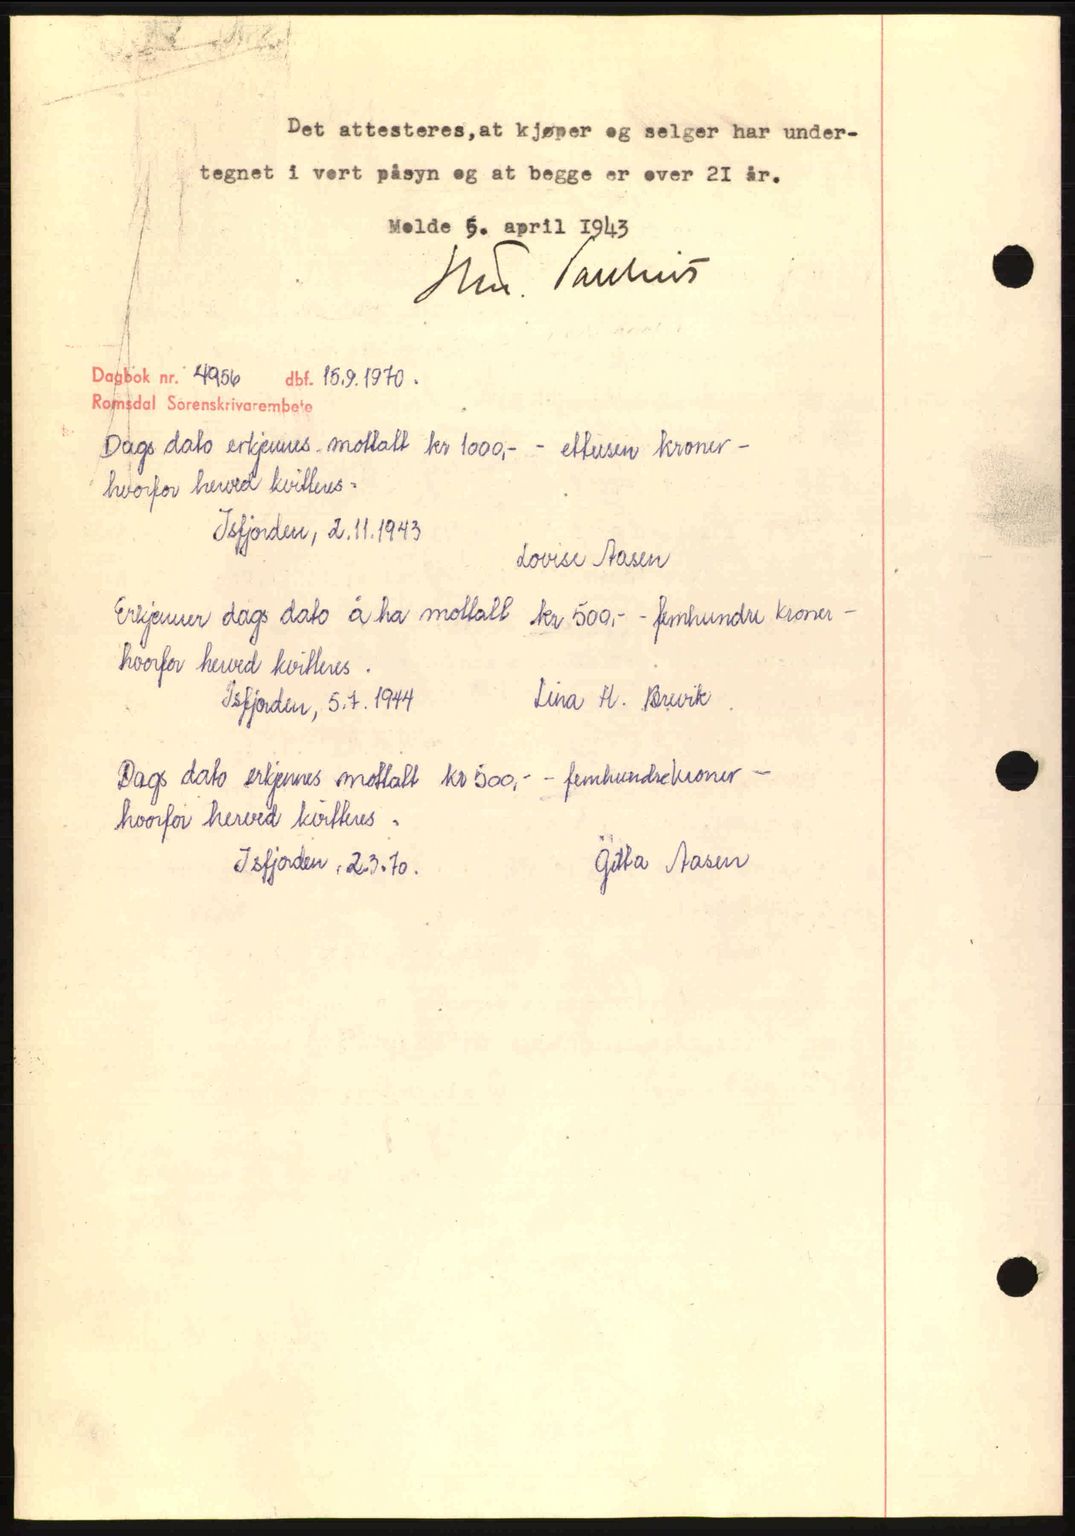 Det attesteres,at kjøper og selger har under-
tegnet i vert påsyn og at begge er over 2I år.
Molde 6. april I943
Dagbok nr. 4956 dbf. 15.9.1970.
Romsdal Sorenskrivarembete
Dags dato erkjennes mottatt kr 1000,- - ettusen kroner -
hvorfor herved kvitteres.
Isfjorden, 2.11.1943
Lovise Aasen
Erkjenner dags dato å ha mottatt kr 500,- - femhundre kroner -
hvorfor herved kvitteres.
Isfjorden, 5.7.1944 Lina H. Brevik
Dags dato erkjennes mottatt kr 500,- - femhundrekroner -
hvorfor herved kvitteres.
Isfjorden, 2.3.70. Gitta Aasen